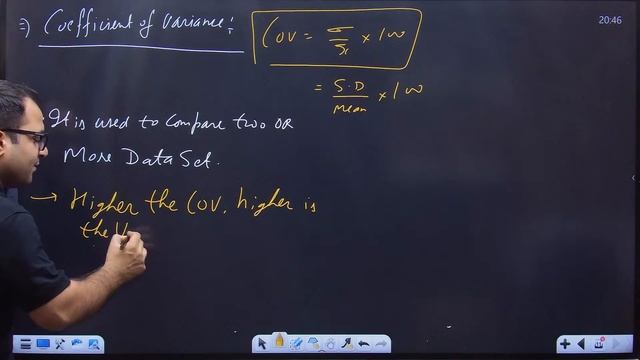 ⇒) Coefficient of Variance:
COV = σ/x̄ × 100
= S.D/Mean × 100
20:46
It is used to compare two OR
More Data Set.
→ Higher the COV, higher is
the